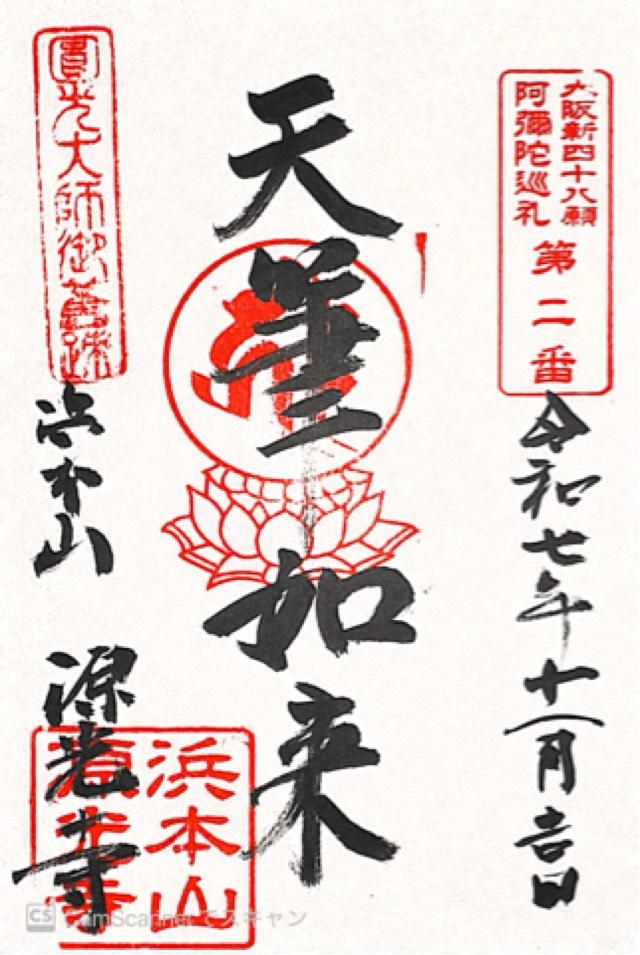 大阪新四十八願
阿彌陀巡礼
第二番
令和七年十一月吉日
天筆如来
圓光大師御舊跡
浜本山
源光寺
浜本山
源光寺
CS CamScanner でスキャン